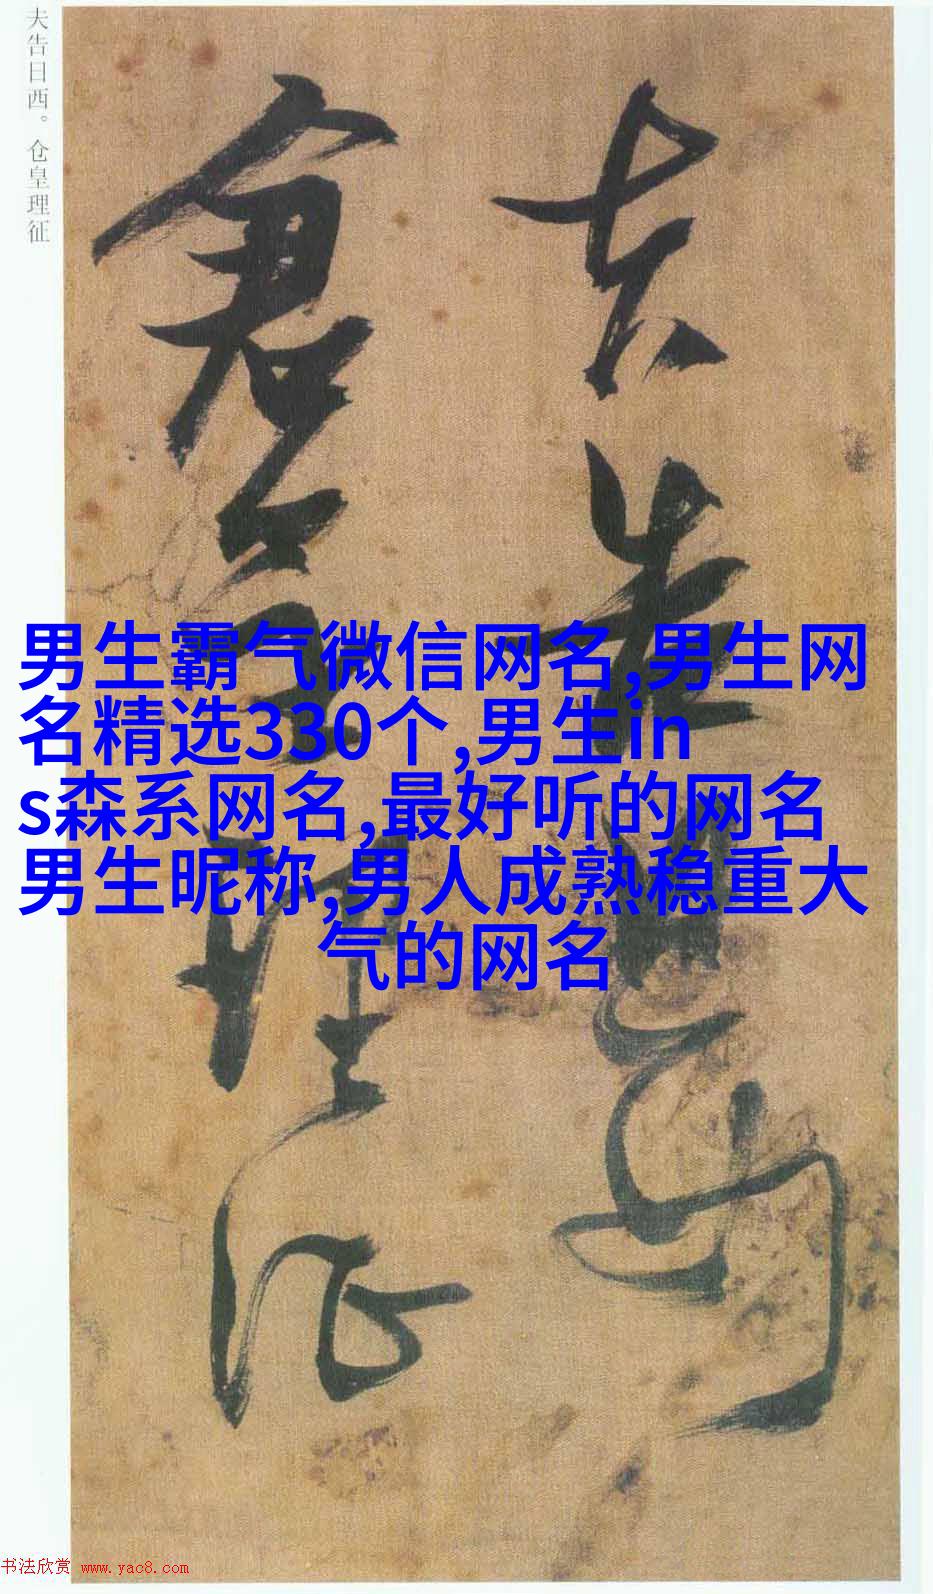 夫告日西。仓皇理征
男生霸气微信网名,男生网
名精选330个,男生in
s森系网名,最好听的网名
男生昵称,男人成熟稳重大
气的网名
书法欣赏 www.yac8.com